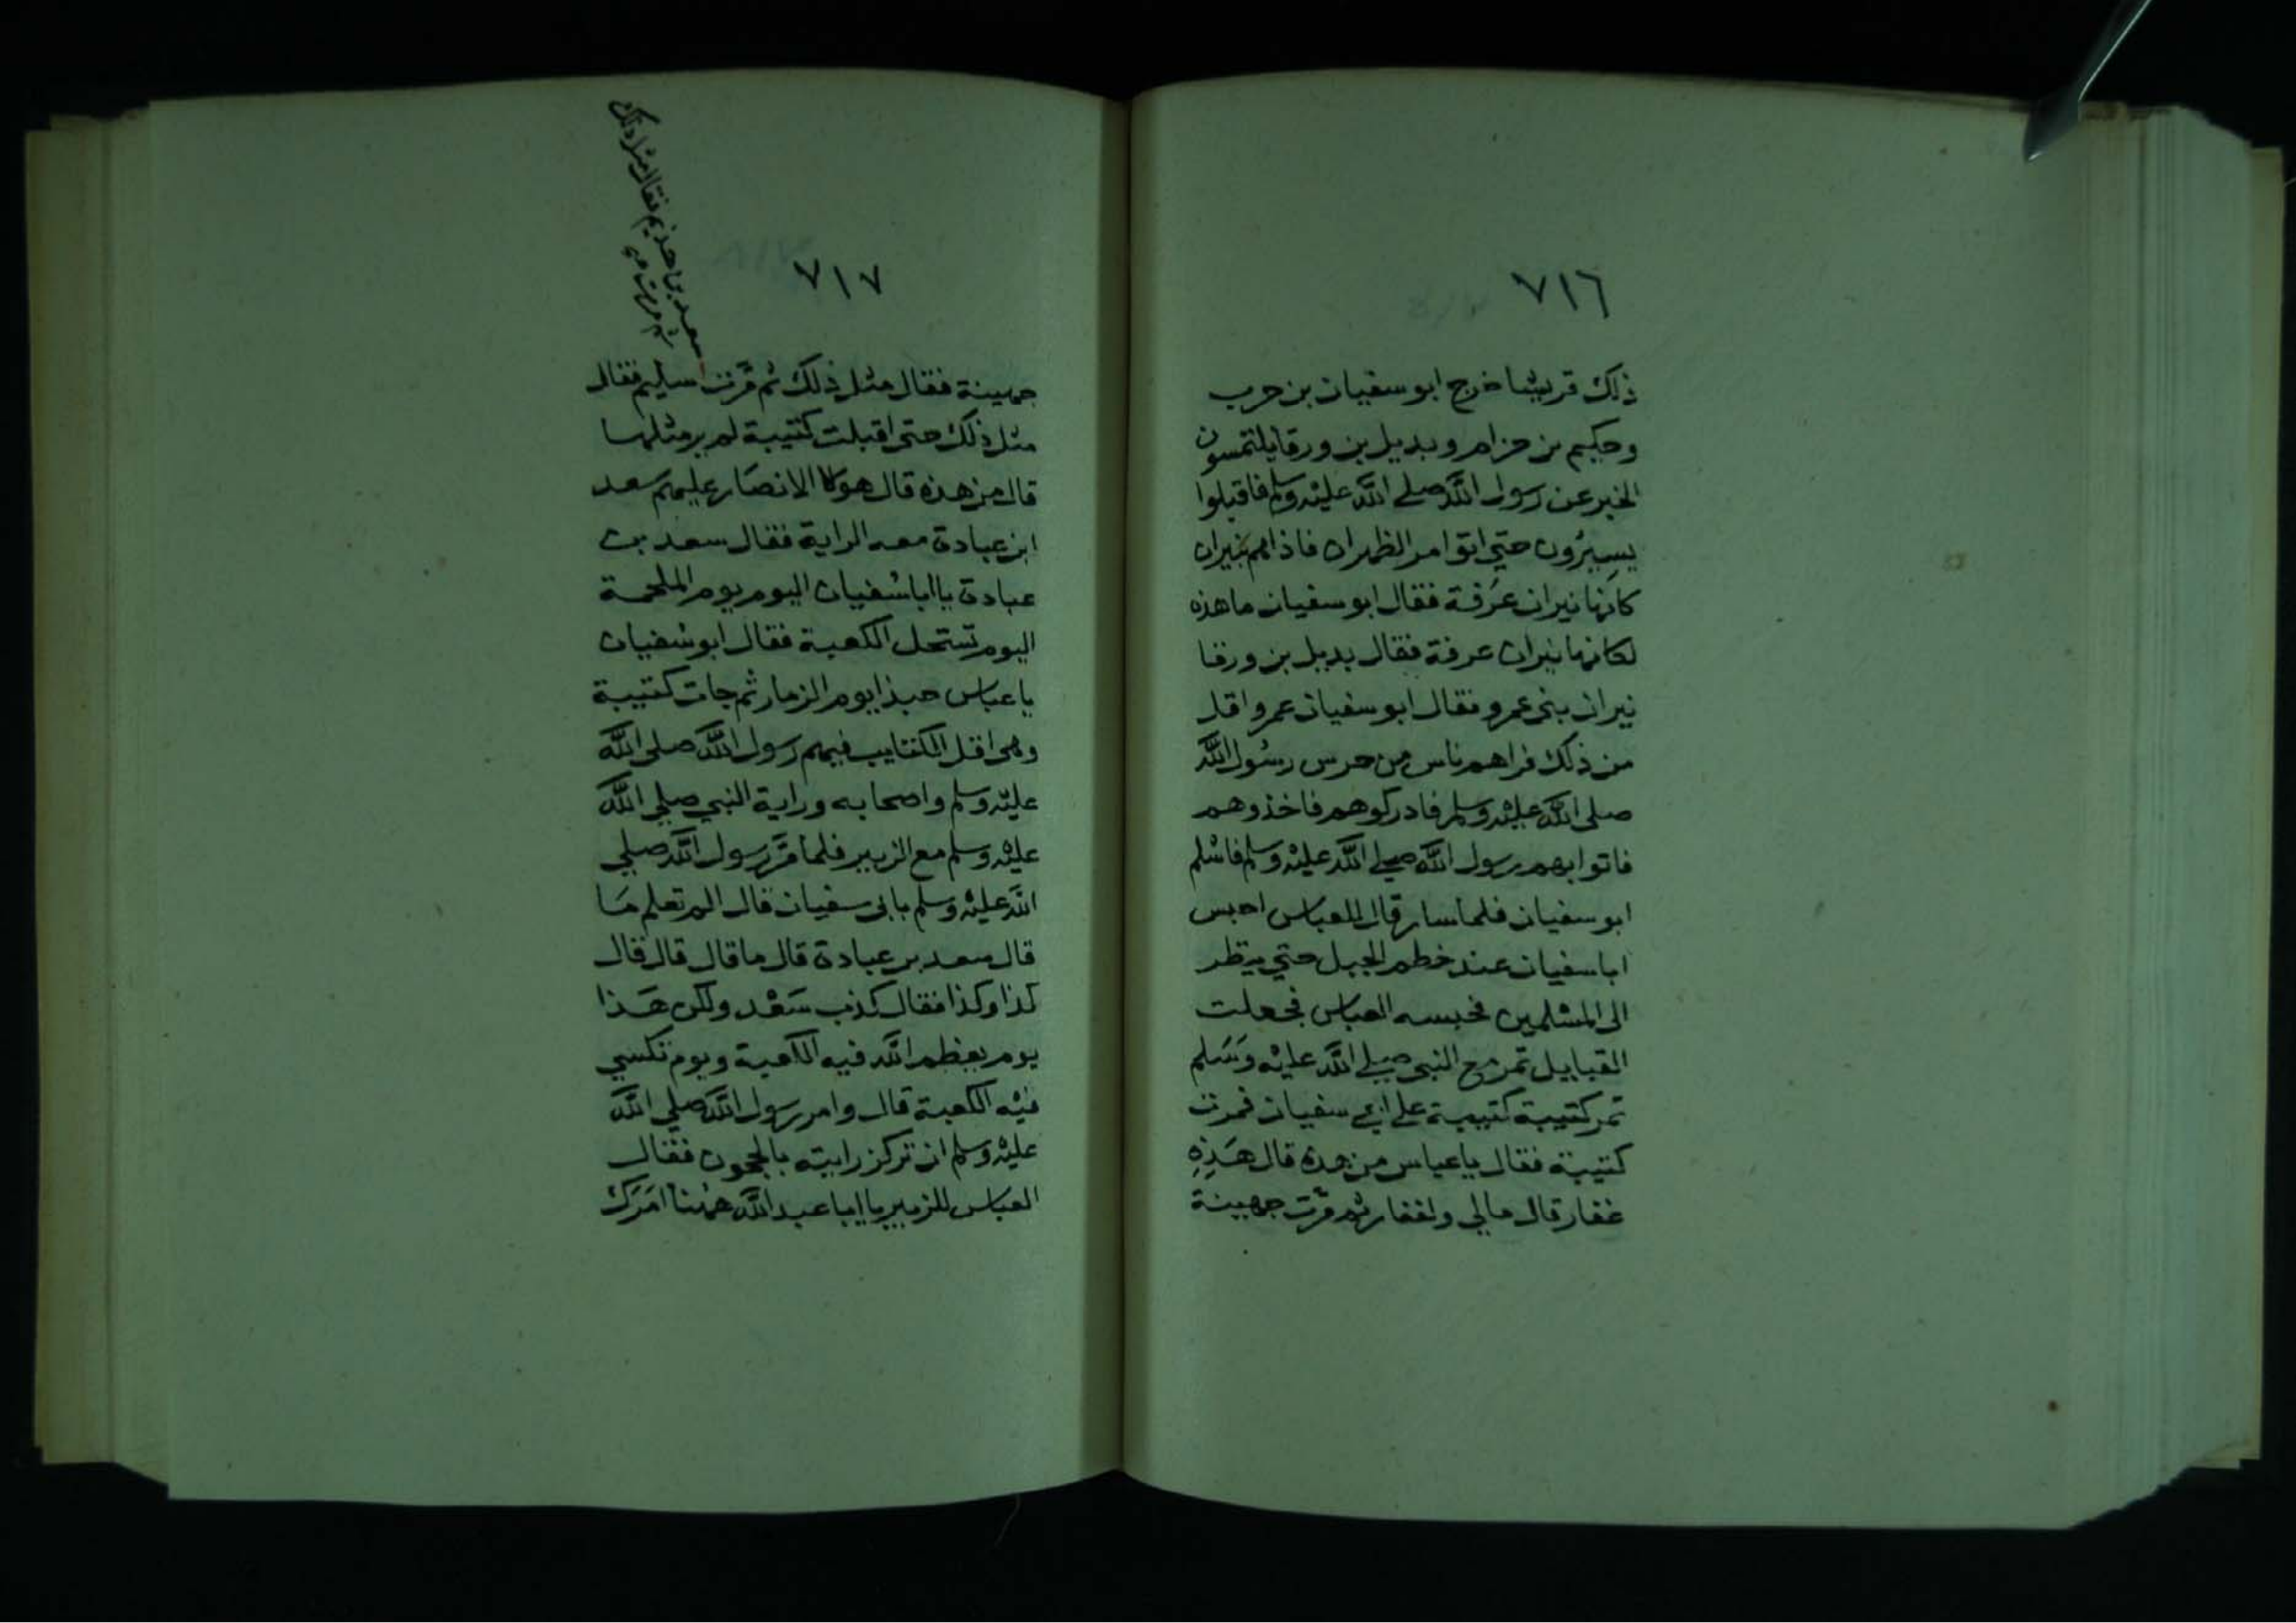 ٧١٦
ذلك قريشا خرج ابو سفيان بن حرب
وحكيم بن حزام وبديل بن ورقا يلتمسون
الخبر عن رسول الله صلى الله عليه وسلم فاقبلوا
يسيرون حتى اتوا مر الظهران فاذا هم بنيران
كانها نيران عرفة فقال ابو سفيان ما هذه
لكانها نيران عرفة فقال بديل بن ورقا
نيران بنى عمرو فقال ابو سفيان عمرو اقل
من ذلك فراهم ناس من حرس رسول الله
صلى الله عليه وسلم فادركوهم فاخذوهم
فاتوا بهم رسول الله صلى الله عليه وسلم فاسلم
ابو سفيان فلما سار قال للعباس احبس
ابا سفيان عند خطم الجبل حتى ينظر
الى المسلمين فحبسه العباس فجعلت
القبايل تمر مع النبى صلى الله عليه وسلم
تمر كتيبة كتيبة على ابى سفيان فمرت
كتيبة فقال يا عباس من هذه قال هذه
غفار قال مالي ولغفار ثم مرت جهينة
٧١٧
سعد بن هذيم فقال مثل ذلك
ثم مرت
جهينة فقال مثل ذلك ثم مرت سليم فقال
مثل ذلك حتى اقبلت كتيبة لم ير مثلها
قال من هذه قال هولا الانصار عليهم سعد
ابن عبادة معه الراية فقال سعد بن
عبادة يا ابا سفيان اليوم يوم الملحمة
اليوم تستحل الكعبة فقال ابو سفيان
يا عباس حبذا يوم الزمار ثم جات كتيبة
وهى اقل الكتايب فيهم رسول الله صلى الله
عليه وسلم واصحابه وراية النبي صلى الله
عليه وسلم مع الزبير فلما مر رسول الله صلى
الله عليه وسلم بابى سفيان قال الم تعلم ما
قال سعد بن عبادة قال ما قال قال قال
كذا وكذا فقال كذب سعد ولكن هذا
يوم يعظم الله فيه الكعبة ويوم تكسي
فيه الكعبة قال وامر رسول الله صلى الله
عليه وسلم ان تركز رايته بالحجون فقال
العباس للزبير يا ابا عبد الله ههنا امرك